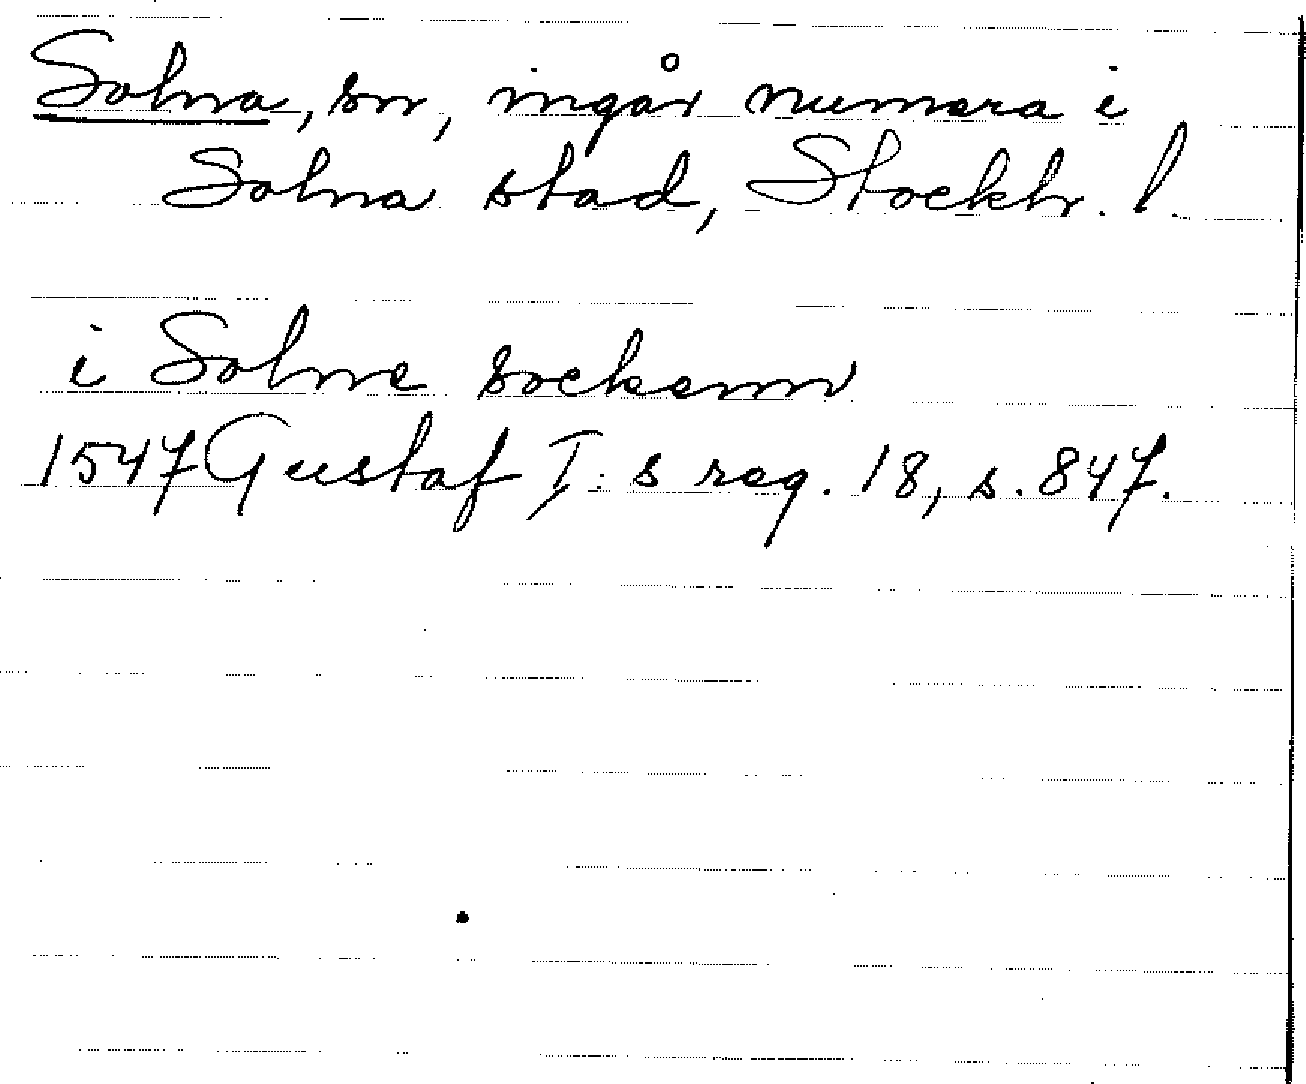 Solna, sn, ingår numera i
Solna stad, Stockh. l.
i Solne sockenn
1547 Gustaf I:s reg. 18, s. 847.